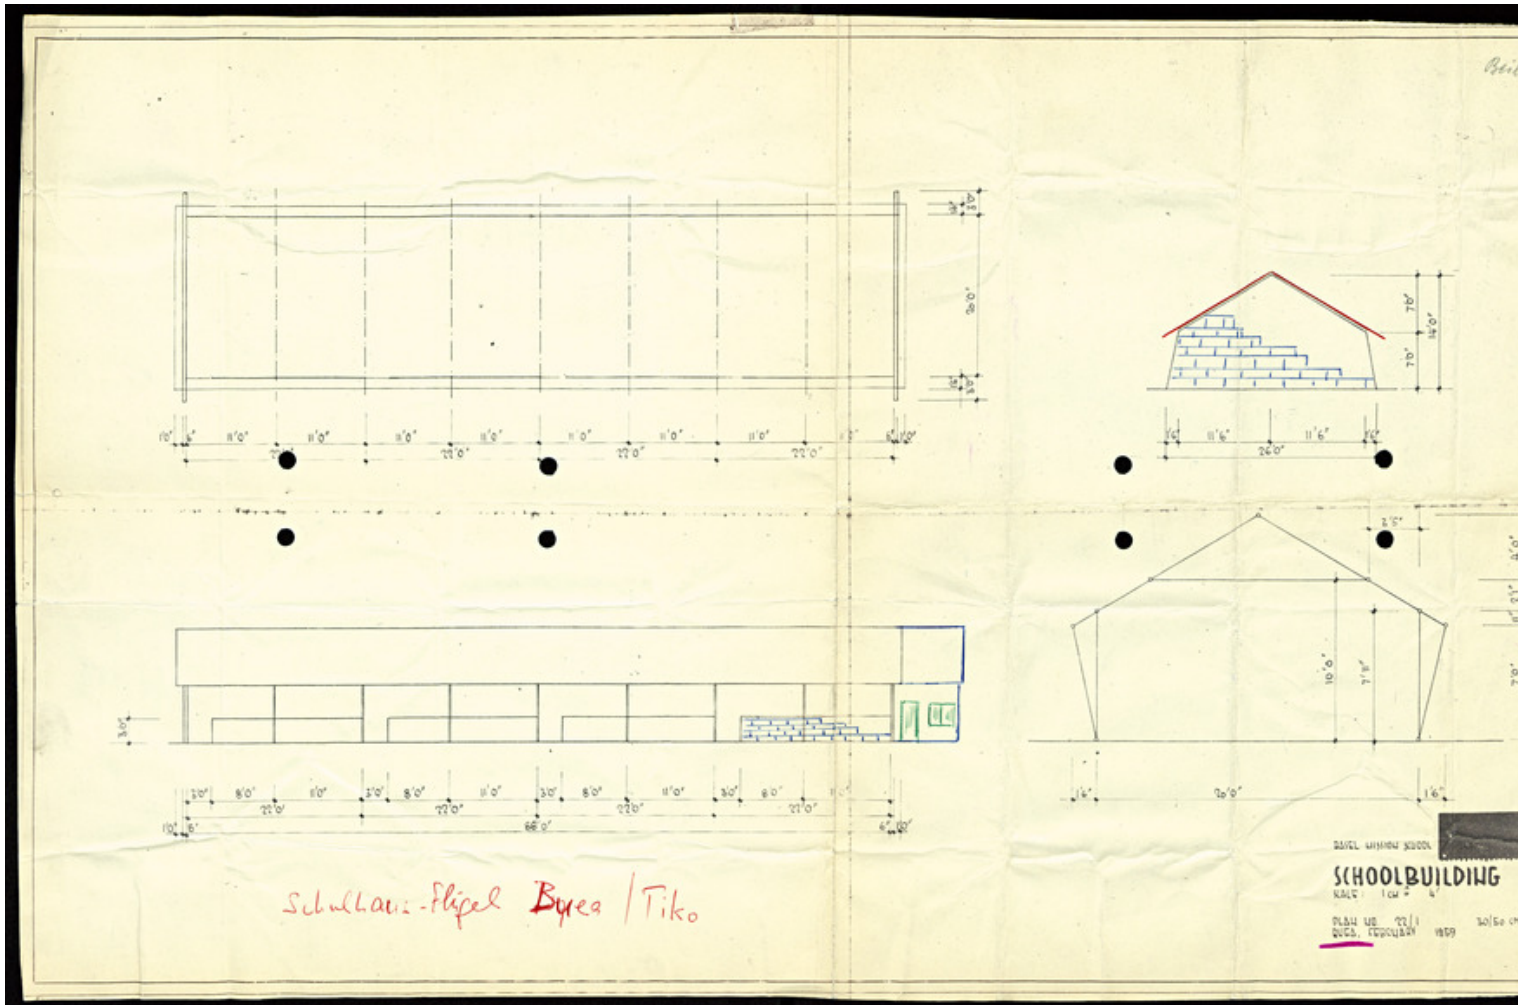 20'0"
1'0" 6" 11'0" 11'0" 11'0" 11'0" 11'0" 11'0" 11'0" 6" 1'0"
22'0" 22'0" 22'0"
7'0"
7'0"
14'0"
1'6" 11'6" 11'6" 1'6"
26'0"
10'0"
7'11"
7'0"
1'6" 20'0" 1'6"
3'0"
3'0" 8'0" 11'0" 3'0" 8'0" 11'0" 3'0" 8'0" 11'0" 3'0" 8'0"
22'0" 22'0" 22'0" 22'0"
1'0" 6" 88'0" 6" 1'0"
Schulhaus-Flügel Buea / Tiko
BASEL MISSION SCHOOL
SCHOOLBUILDING
SCALE: 1 CM = 4'
PLAN NO. 22/1 30/50 CM
BUEA, FEBRUARY 1959